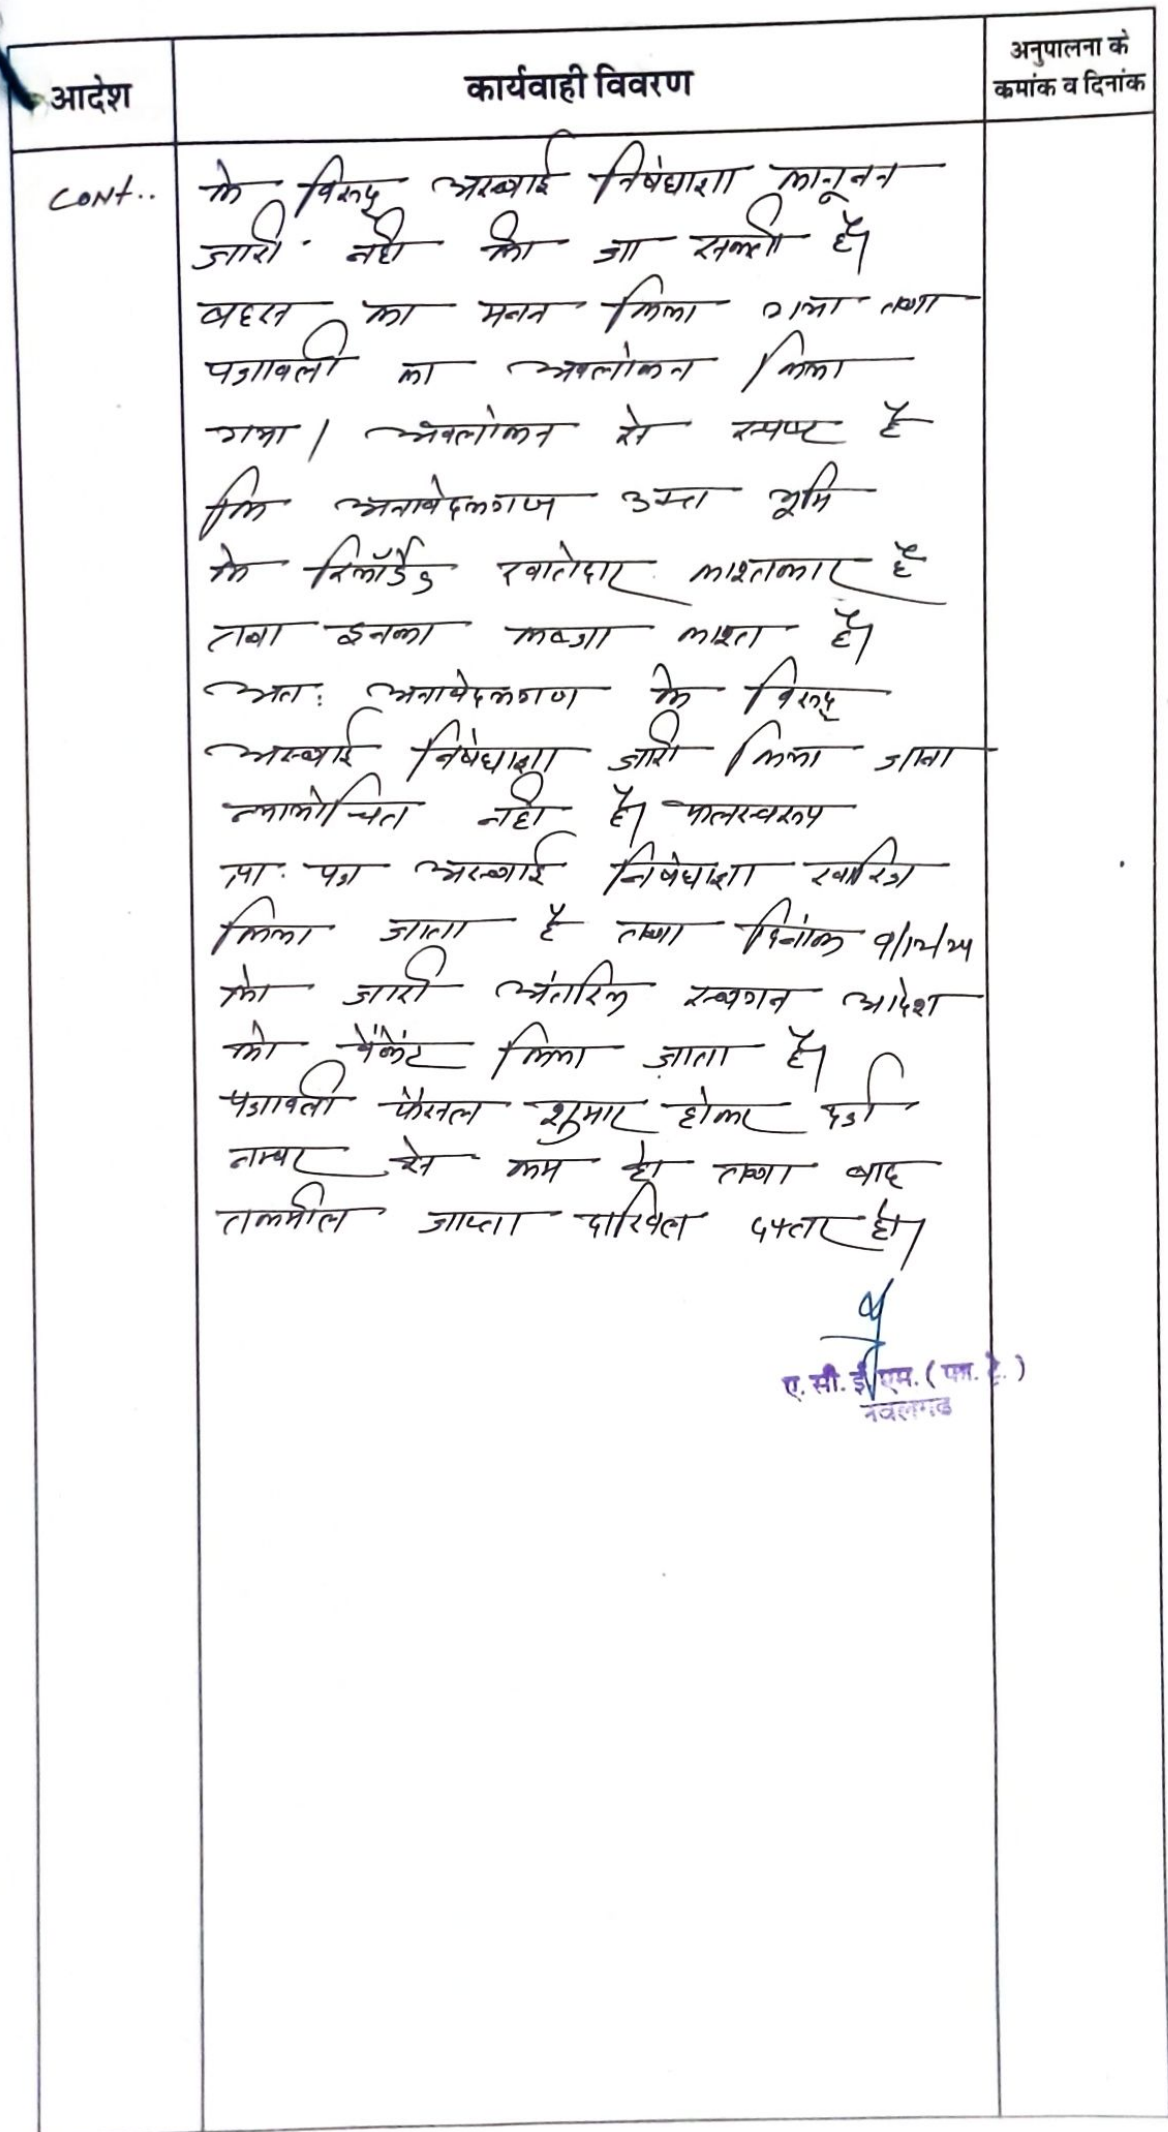 आदेश
कार्यवाही विवरण
अनुपालना के
कमांक व दिनांक
CONT..
के विरुद्ध अस्थाई निषेधाज्ञा कानूनन
जारी नही की जा सकती है।
बहस का मनन किया गया तथा
पत्रावली का अवलोकन किया
गया। अवलोकन से स्पष्ट है
कि अनावेदकगण उक्त भूमि
के रिकॉर्डेड खातेदार काश्तकार है
तथा इनका कब्जा काश्त है।
अतः अनावेदकगण के विरुद्ध
अस्थाई निषेधाज्ञा जारी किया जाना
न्यायोचित नही है। फलस्वरूप
प्रा. पत्र अस्थाई निषेधाज्ञा खारिज
किया जाता है तथा दिनांक
को जारी अंतरिम स्थगन आदेश
को वैकेंट किया जाता है।
पत्रावली फैसल शुमार होकर दर्ज
नम्बर से कम हो तथा बाद
तकमील जाप्ता दाखिल दफ्तर हो।
ए. सी. ई. एम. (फा. ट्रे.)
नवलगढ